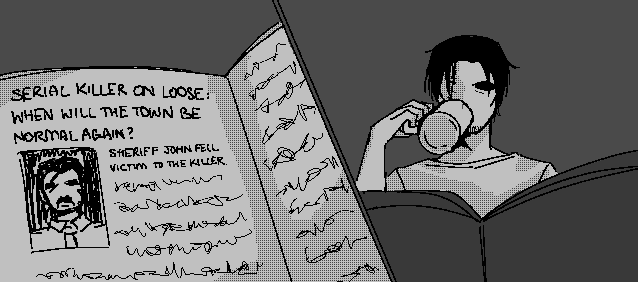 SERIAL KILLER ON LOOSE:
WHEN WILL THE TOWN BE
NORMAL AGAIN?
SHERIFF JOHN FELL
VICTIM TO THE KILLER.